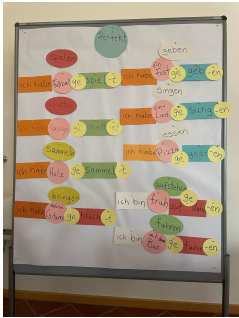 perfekt
spielen
ich habe Fußball ge spiel -t
ich habe lange ge -t
sammeln
ich habe Holz ge sammel -t
bringen
ich habe ge brach -t
geben
ich habe ein Fest ge geb -en
singen
ich habe ein Lied ge sung -en
essen
ich habe Pizza ge gess -en
aufstehen
ich bin früh auf ge -en
fahren
ich bin mit dem Bus ge fahr -en